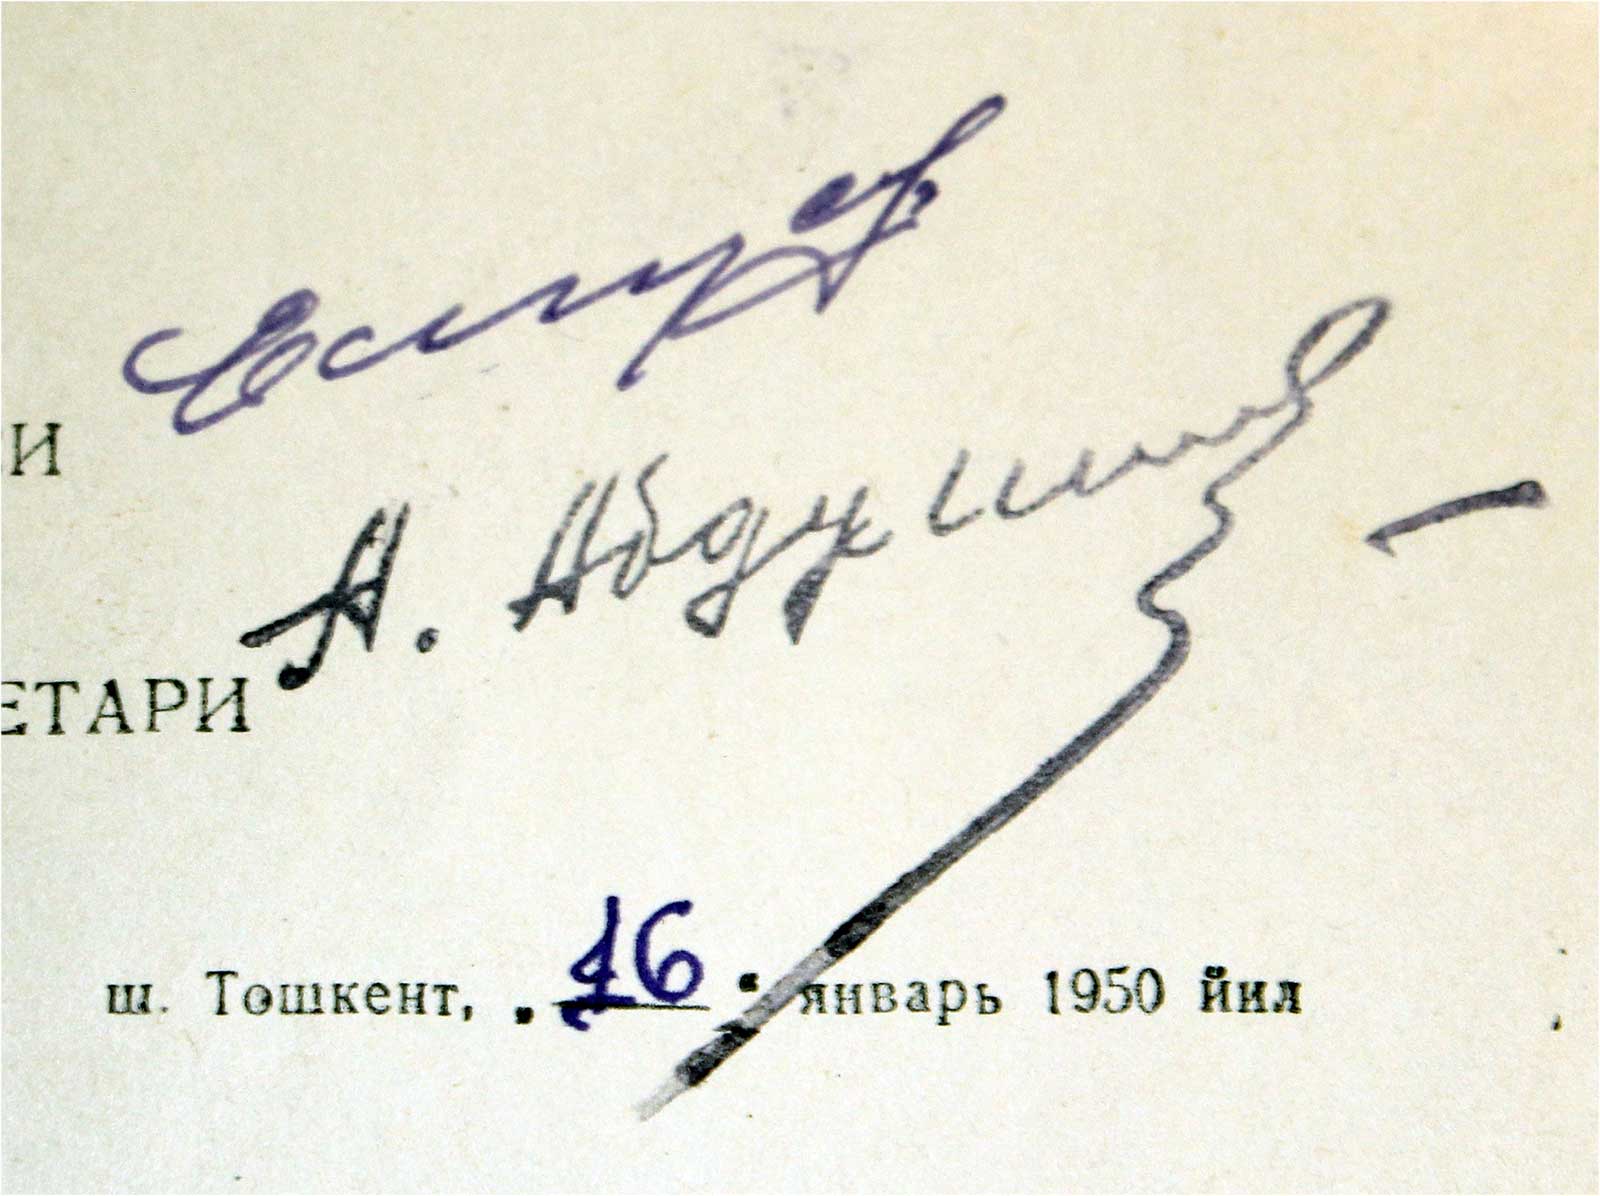 И
А. Абду
ЕТАРИ
ш. Тошкент, „16“ январь 1950 йил